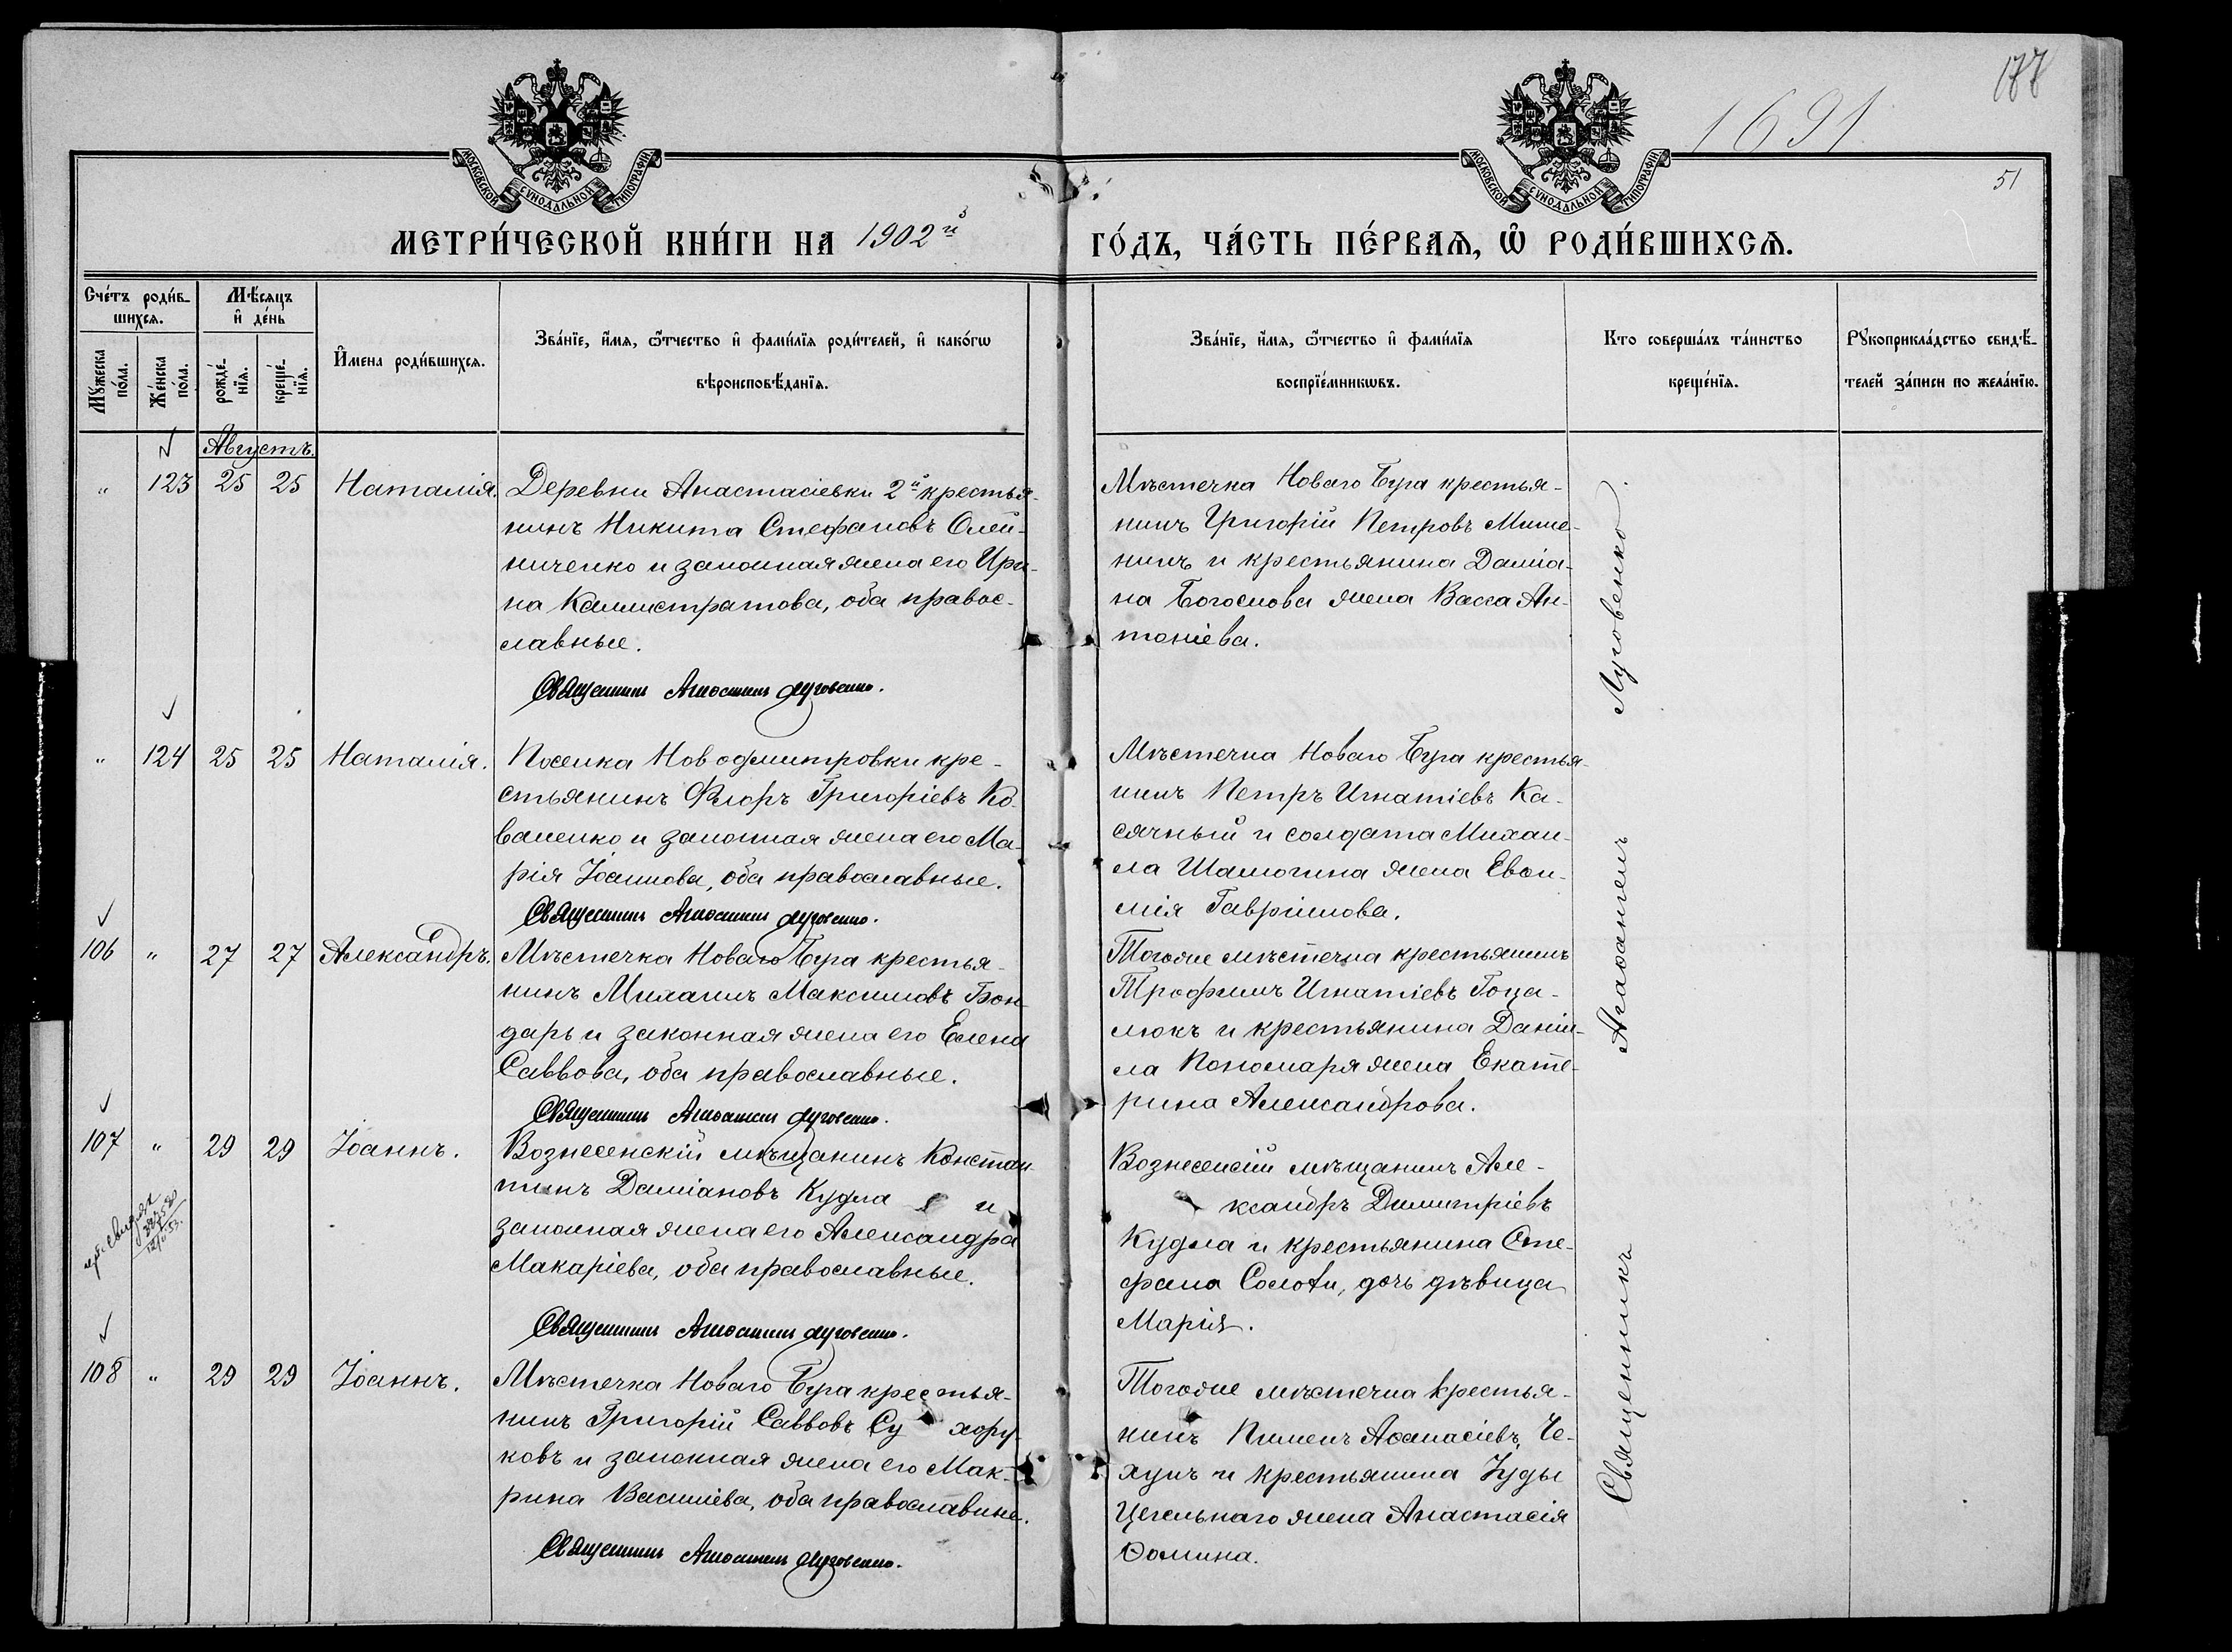 1691
177
51
МОСКОВСКОЙ СѴНОДАЛЬНОЙ ТИПОГРАФІИ
МОСКОВСКОЙ СѴНОДАЛЬНОЙ ТИПОГРАФІИ
МЕТРИ́ЧЕСКОЙ КНИ́ГИ НА 1902й
ГО́ДЪ, ЧА́СТЬ ПЕ́РВАѦ, Ѽ РОДИ́ВШИХСѦ.
Сче́тъ роди́в-
шихсѧ.
Мꙋжеска по́ла.
Же́нска по́ла.
Мѣ́сѧцъ
и҆ де́нь
рожде́-
нїѧ.
креще́-
нїѧ.
И҆мена роди́вшихсѧ.
Зва́нїе, и҆́мѧ, ѻ҆́тчество и҆ фами́лїѧ роди́телей, и҆ како́гѡ
вѣроисповѣ́данїѧ.
Зва́нїе, и҆́мѧ, ѻ҆́тчество и҆ фами́лїѧ
воспрїе́мникѡвъ.
Кто соверша́лъ та́инство
креще́нїѧ.
Рꙋкоприкла́дство свидѣ́-
телей за́писи по жела́нїю.
Августъ.
" 123 25 25 Наталія.
Деревни Анастасіевки 2й крестья-
нинъ Никита Стефановъ Олей-
ниченко и законная жена его Ири-
на Каллистратова, оба правос-
лавные.
Священникъ Агафангелъ Луговенко.
Мѣстечка Новаго Буга крестья-
нинъ Григорій Петровъ Мише-
нинъ и крестьянина Даміа-
на Богослова жена Васса Ан-
тоніева.
" 124 25 25 Наталія.
Поселка Новодмитровки кре-
стьянинъ Флоръ Григоріевъ Ко-
валенко и законная жена его Ма-
рія Іоаннова, оба православные.
Священникъ Агафангелъ Луговенко.
Мѣстечка Новаго Буга крестья-
нинъ Петръ Игнатіевъ Ка-
сячный и солдата Михаи-
ла Шалогина жена Евѳи-
мія Гавріилова.
106 " 27 27 Александръ.
Мѣстечка Новаго Буга крестья-
нинъ Михаилъ Максимовъ Бон-
дарь и законная жена его Елена
Саввова, оба православные.
Священникъ Агафангелъ Луговенко.
Тогоже мѣстечка крестьянинъ
Трофимъ Игнатіевъ Гоца-
люкъ и крестьянина Даніи-
ла Пономаря жена Екате-
рина Александрова.
107 " 29 29 Іоаннъ.
Вознесенскій мѣщанинъ Констан-
тинъ Даміановъ Кудла и
законная жена его Александра
Макаріева, оба православные.
Священникъ Агафангелъ Луговенко.
Вознесенскій мѣщанинъ Але-
ксандръ Димитріевъ
Кудла и крестьянина Сте-
фана Соловья, дочь дѣвица
Марія.
108 " 29 29 Іоаннъ.
Мѣстечка Новаго Буга крестья-
нинъ Григорій Саввовъ Сухору-
ковъ и законная жена его Мак-
рина Василіева, оба православные.
Священникъ Агафангелъ Луговенко.
Тогоже мѣстечка крестья-
нинъ Пименъ Аѳанасіевъ Че-
хунъ и крестьянина Іуды
Цегельнаго жена Анастасія
Ѳомина.
Священникъ Агафангелъ Луговенко.